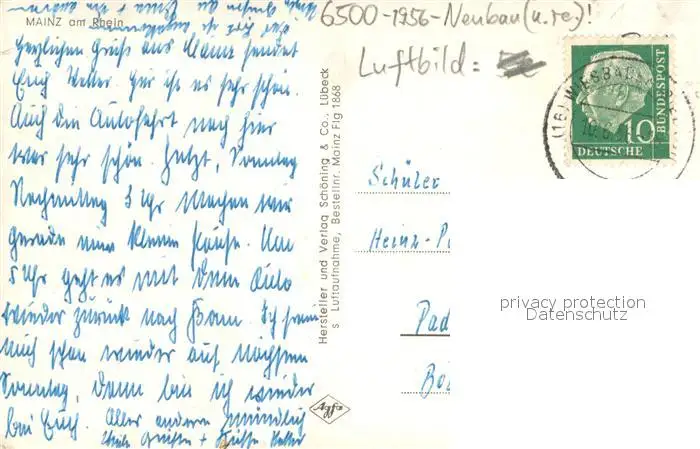 MAINZ am Rhein
6500-1956-Neubau (u. re.)!
Luftbild =
Herzlichen Gruß aus Mainz sendet
Euch Vater. Hier ist es sehr schön.
Auch die Autofahrt nach hier
war sehr schön. Jetzt, Sonntag
Nachmittag 3 Uhr machen wir
gerade eine kleine Pause. Um
5 Uhr geht es mit dem Auto
wieder zurück nach Bonn. Ich
mich schon wieder auf nächsten
Sonntag, dann bin ich wieder
bei Euch. Alles andere mündlich
Viele Grüße + Küsse
Hersteller und Verlag Schöning & Co., Lübeck
s Luftaufnahme, Bestellnr. Mainz Flg 1868
Agfa
DEUTSCHE BUNDESPOST
10
(16) WIESBADEN
Schüler
Heinz-P
Pad
privacy protection
Datenschutz